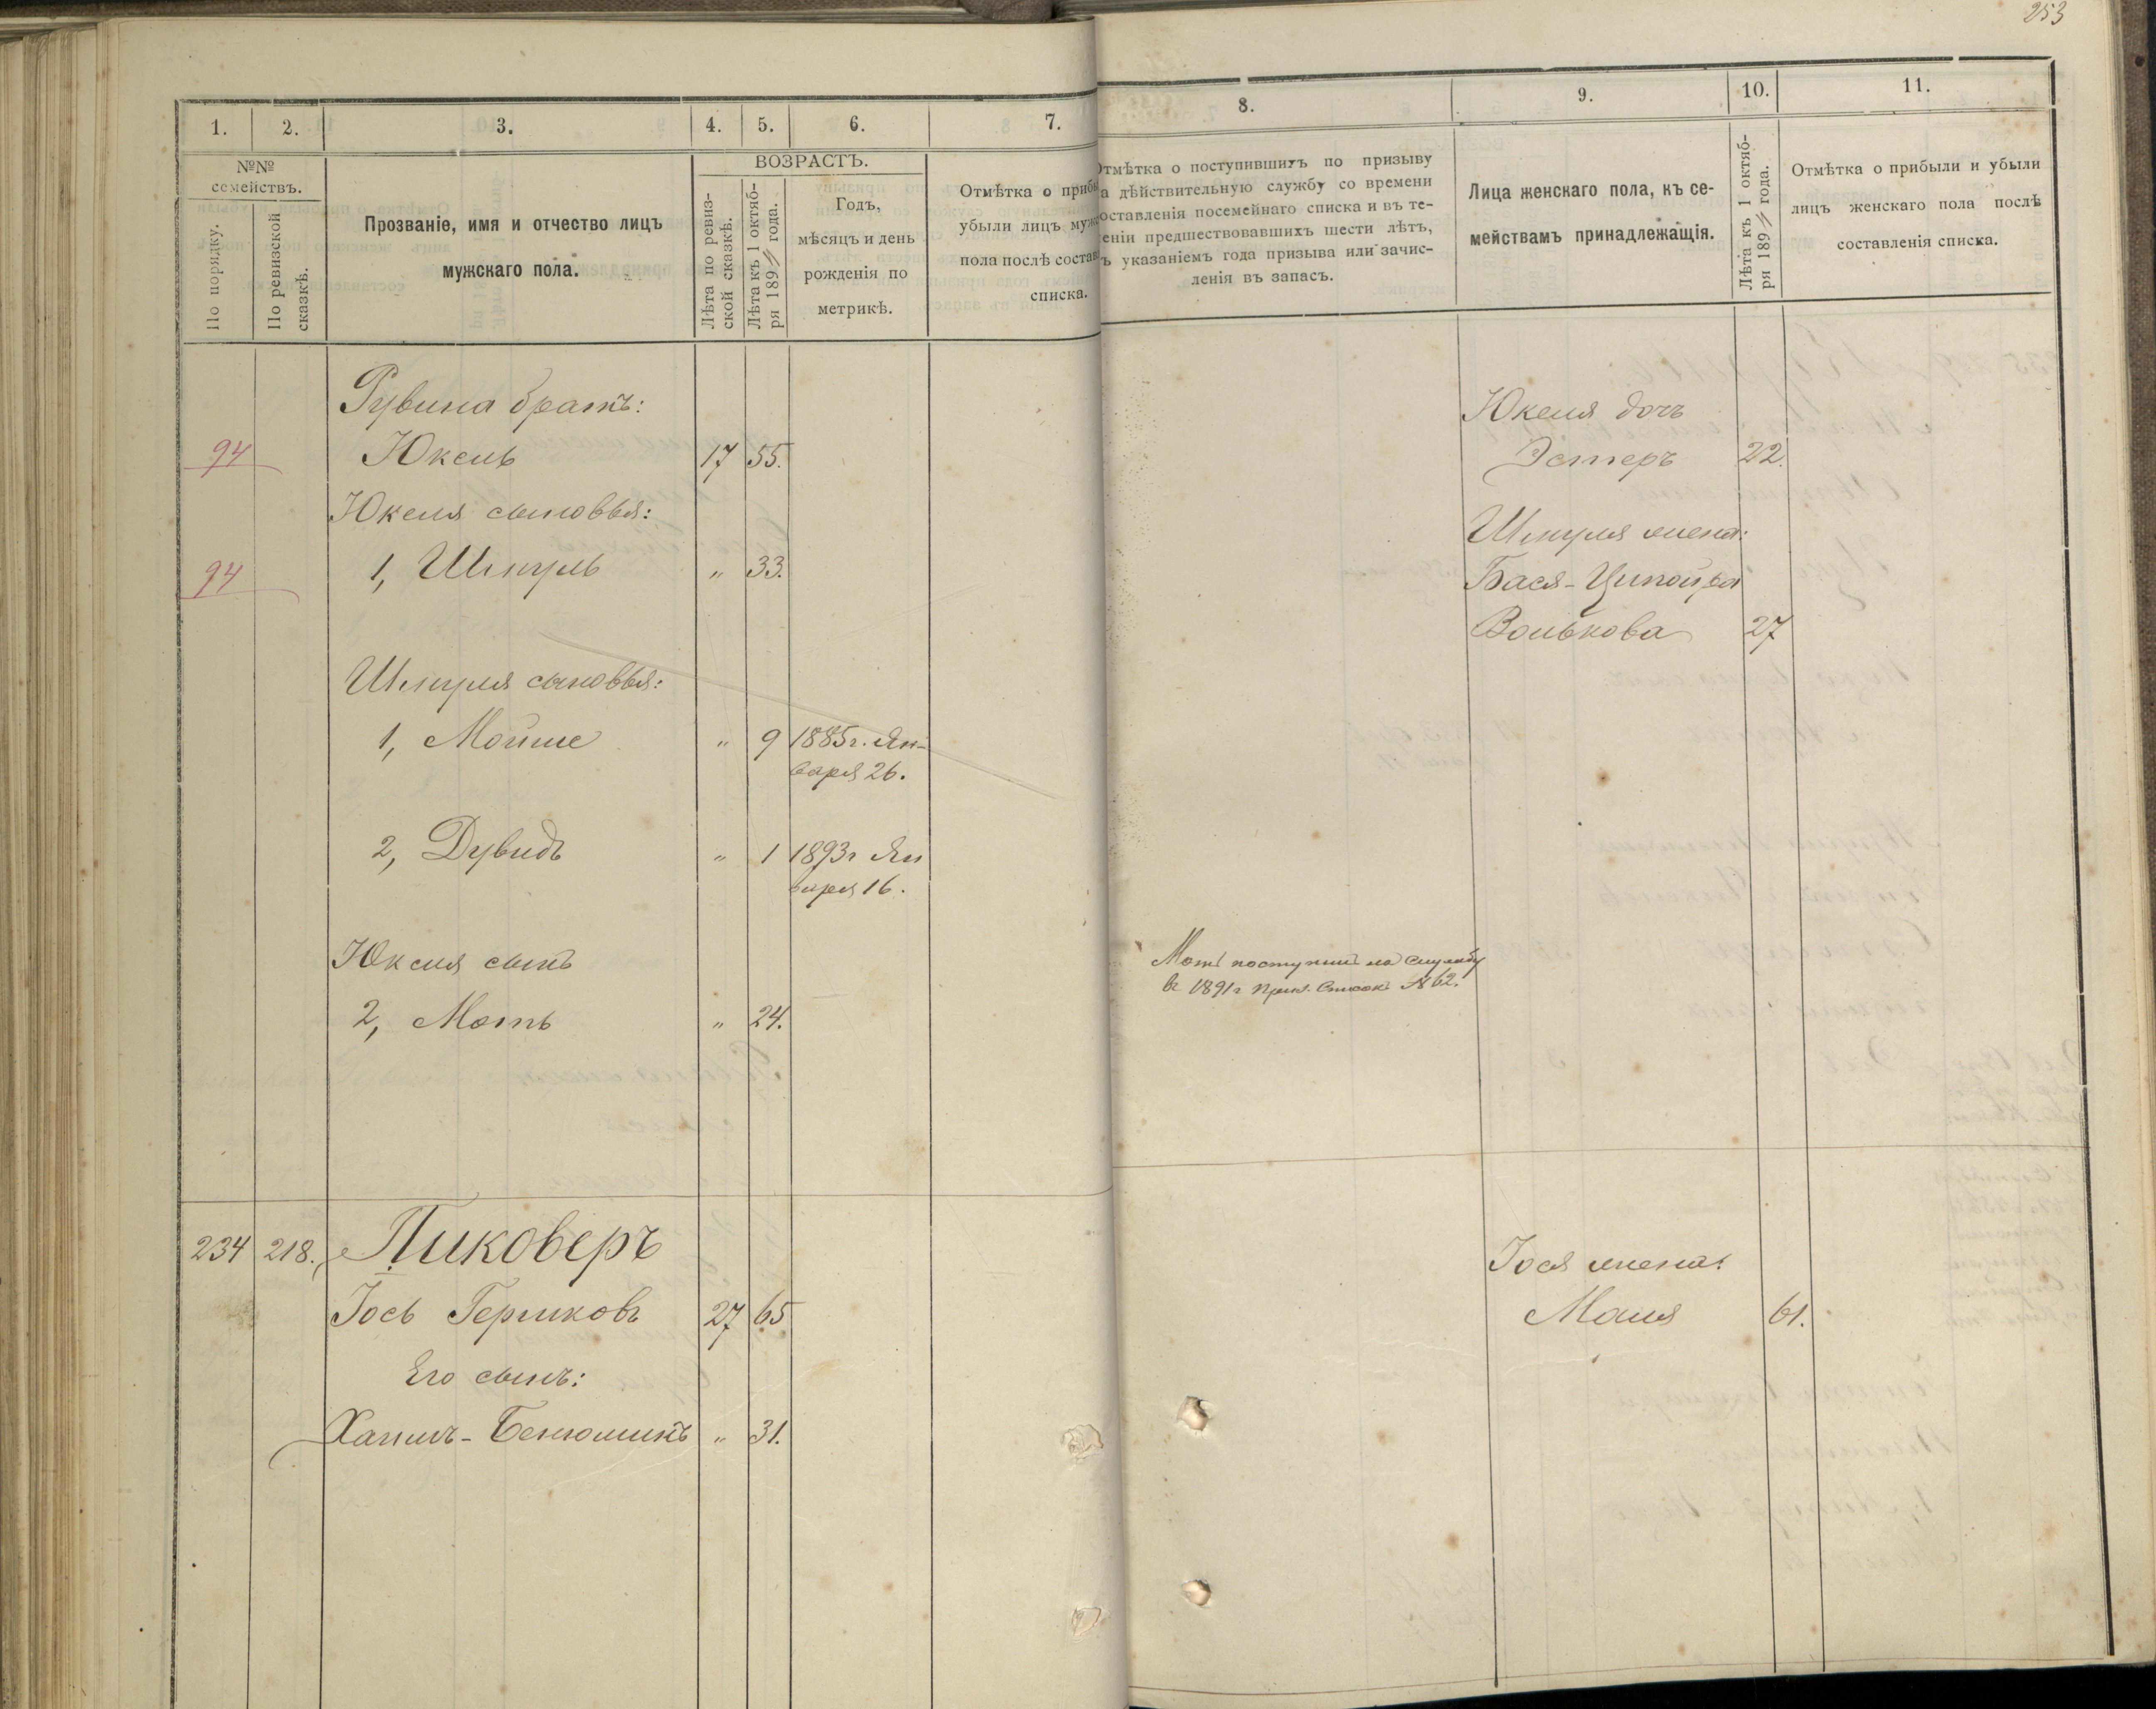 253
1.
2.
3.
4.
5.
6.
7.
8.
9.
10.
11.
№№ семействъ.
По порядку.
По ревизской сказкѣ.
Прозваніе, имя и отчество лицъ
мужскаго пола.
ВОЗРАСТЪ.
Лѣта по ревиз-
ской сказкѣ.
Лѣта къ 1 октяб-
ря 189 года.
Годъ,
мѣсяцъ и день
рожденія по
метрикѣ.
Отмѣтка о приб
убыли лицъ муж
пола послѣ состав
списка.
Отмѣтка о поступившихъ по призыву
а дѣйствительную службу со времени
оставленія посемейнаго списка и въ те-
еніи предшествовавшихъ шести лѣтъ,
ъ указаніемъ года призыва или зачис-
ленія въ запасъ.
Лица женскаго пола, къ се-
мействамъ принадлежащія.
Лѣта къ 1 октяб-
ря 189 года.
Отмѣтка о прибыли и убыли
лицъ женскаго пола послѣ
составленія списка.
Рувина братъ:
94 Юкель 17 55.
Юкеля сыновья:
94 1, Шмуль " 33.
Шмуля сыновья:
1, Мойше " 9 1885г. Ян-
варя 26.
2, Дувидъ " 1 1893г Ян
варя 16.
Юкеля сынъ
2, Моть " 24.
234 218. Пиковеръ
Іось Гершковъ 27 65
Его сынъ:
Хаимъ-Бенюминъ " 31.
Юкеля дочь
Эстеръ 22.
Шмуля жена:
Бася-Ципойра
Волькова 27
Моть поступилъ на службу
въ 1891г приз. Списокъ №62.
Іося жена:
Маля 61.